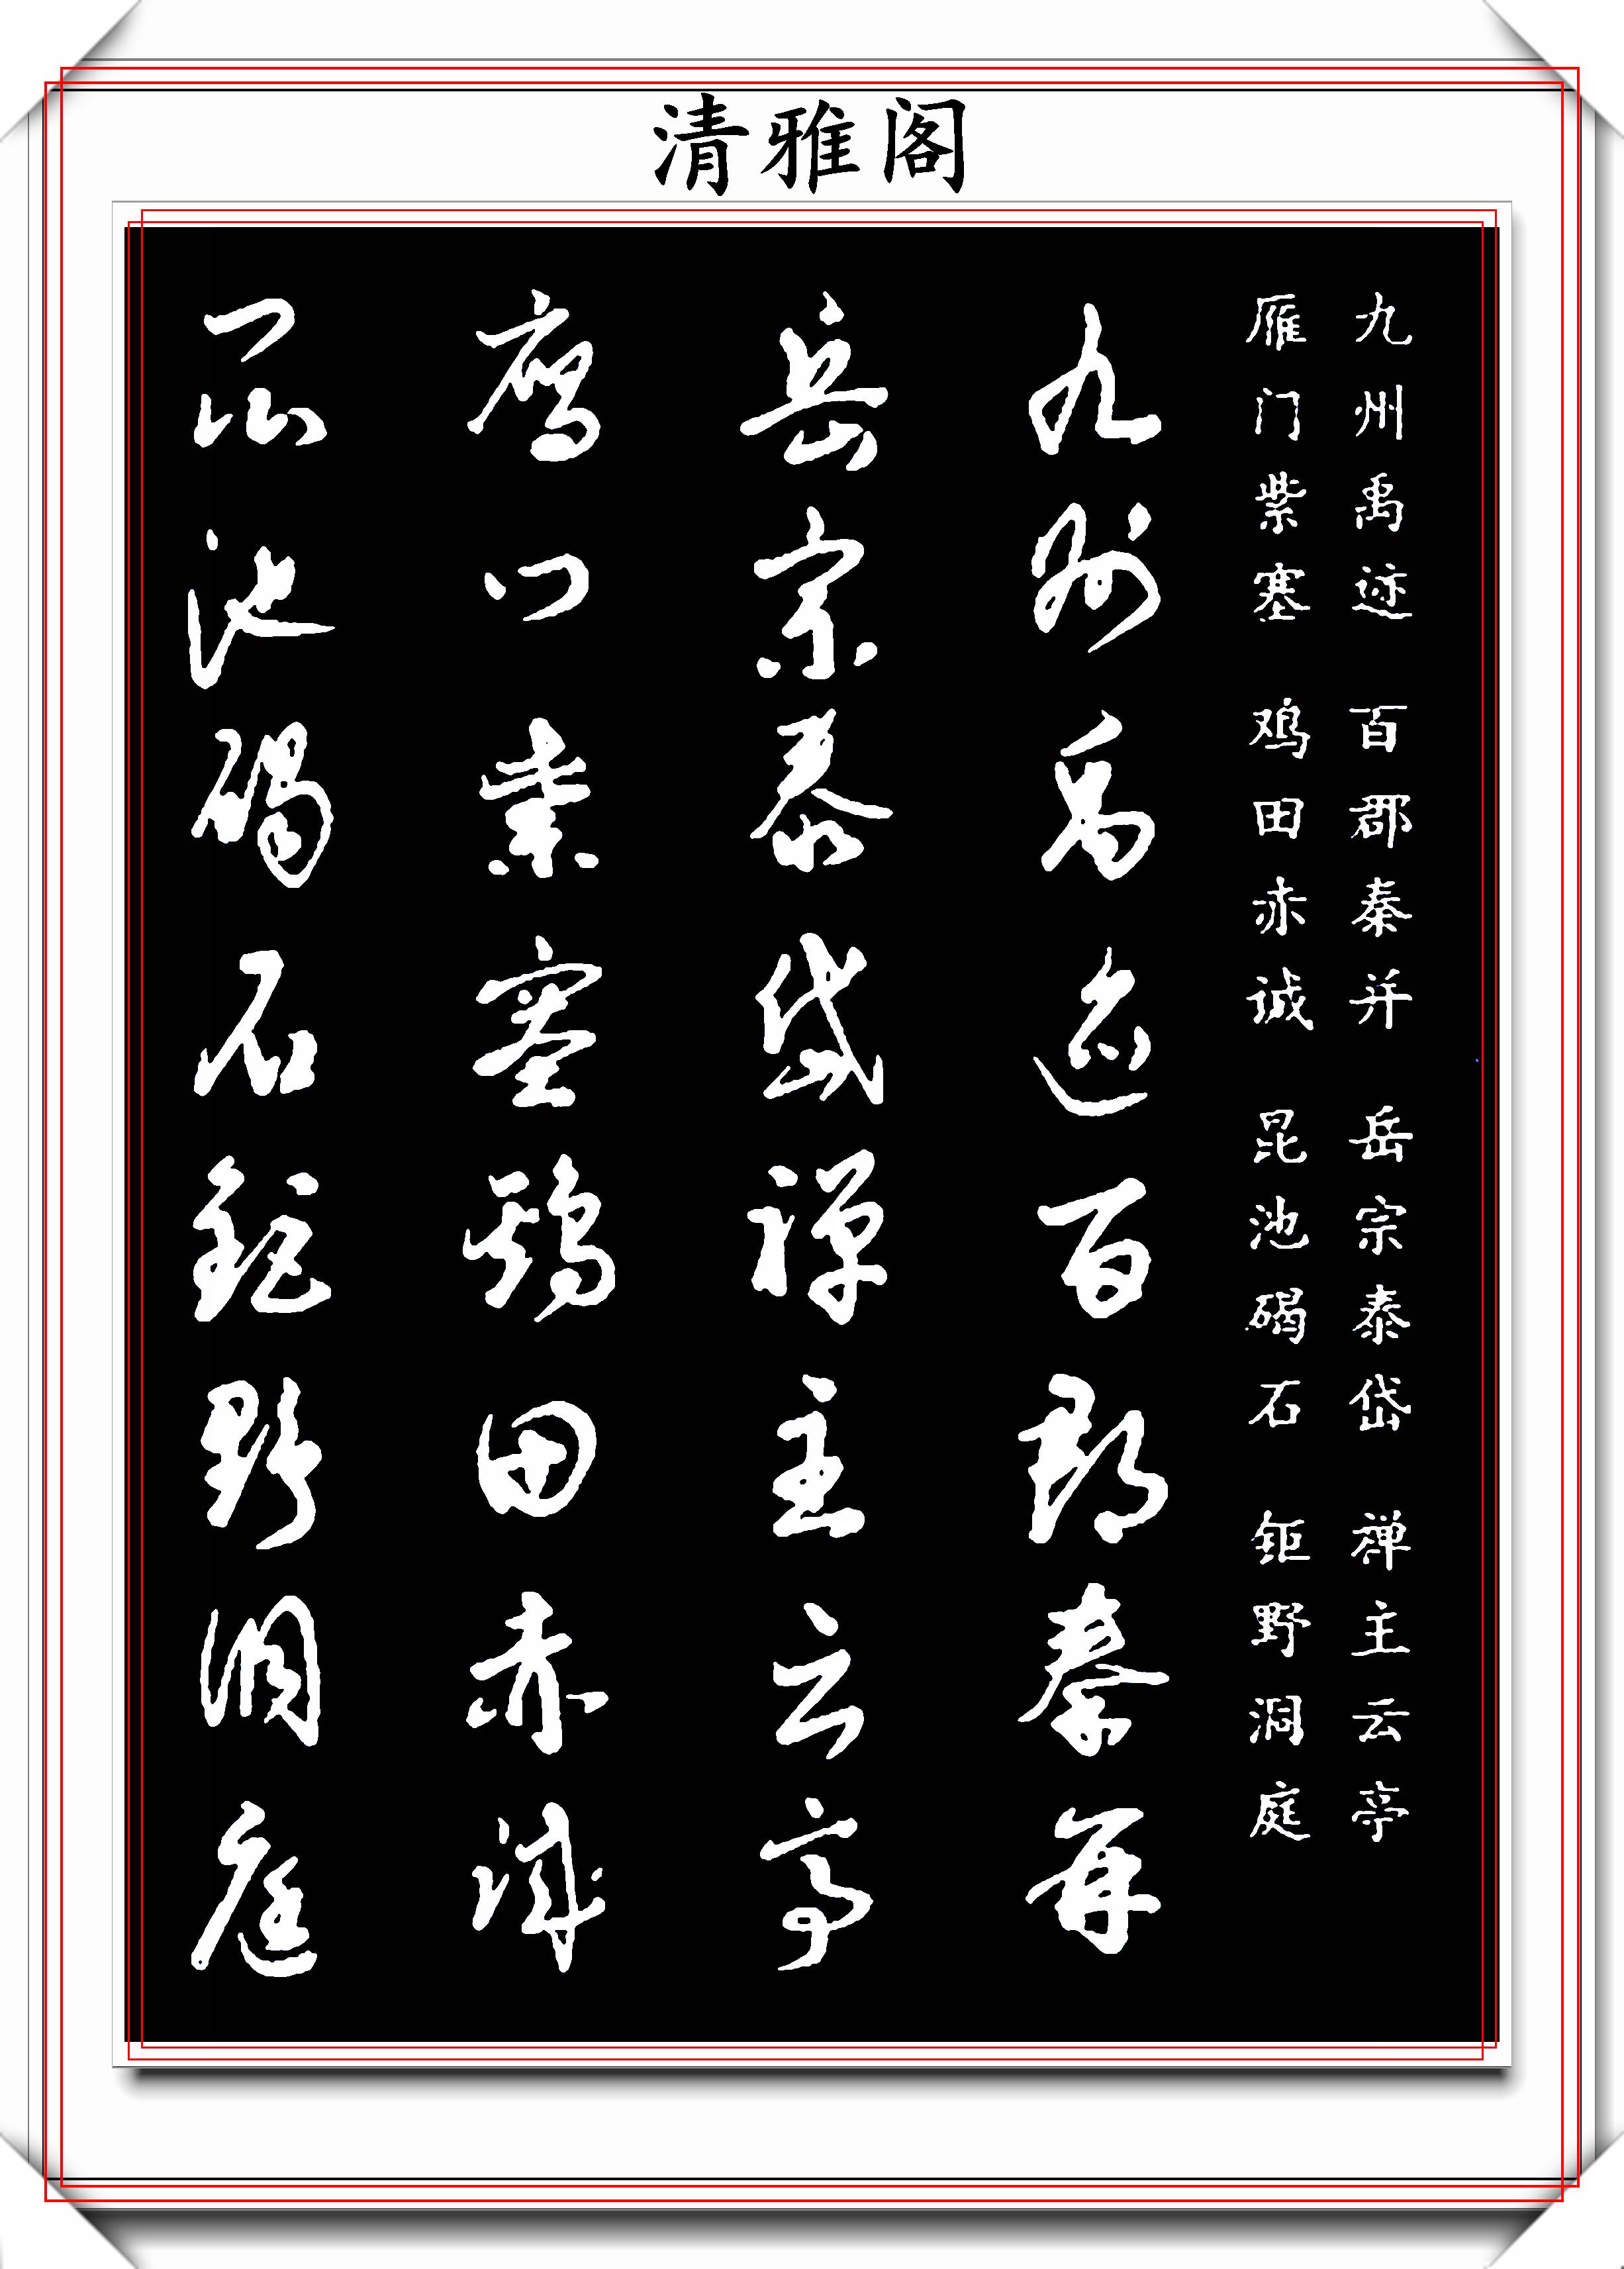 清雅阁
九州禹迹 百郡秦并 岳宗泰岱 禅主云亭
雁门紫塞 鸡田赤诚 昆池碣石 钜野洞庭
九州禹迹百郡秦并
岳宗泰岱禅主云亭
雁门紫塞鸡田赤诚
昆池碣石钜野洞庭